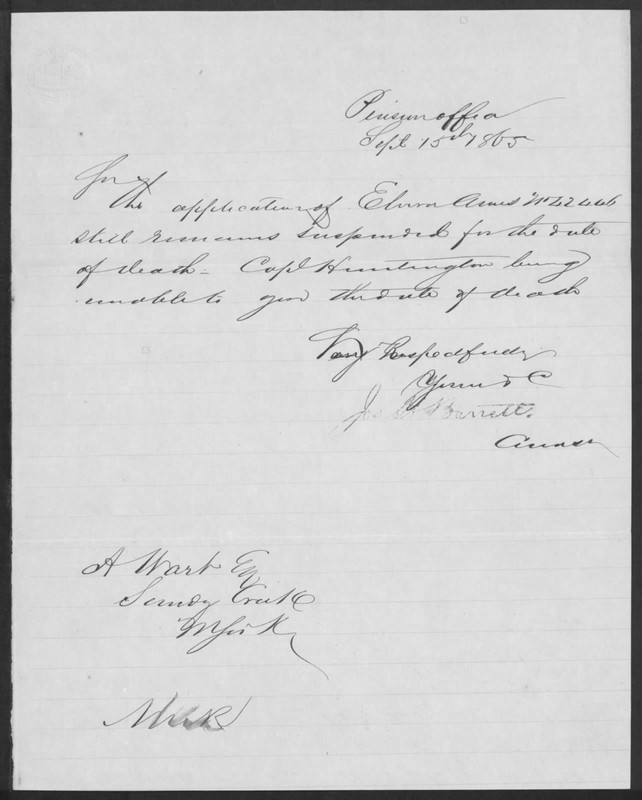 Pension office
Sept 15th 1865
Sir
The application of Elvira Ames No 22446
still remains suspended for the date
of death - Capt Huntington being
unable to give the date of death
Very Respectfully
Yours &C
Jos. H. Barrett.
A Wart Esq
Sandy Creek
N York